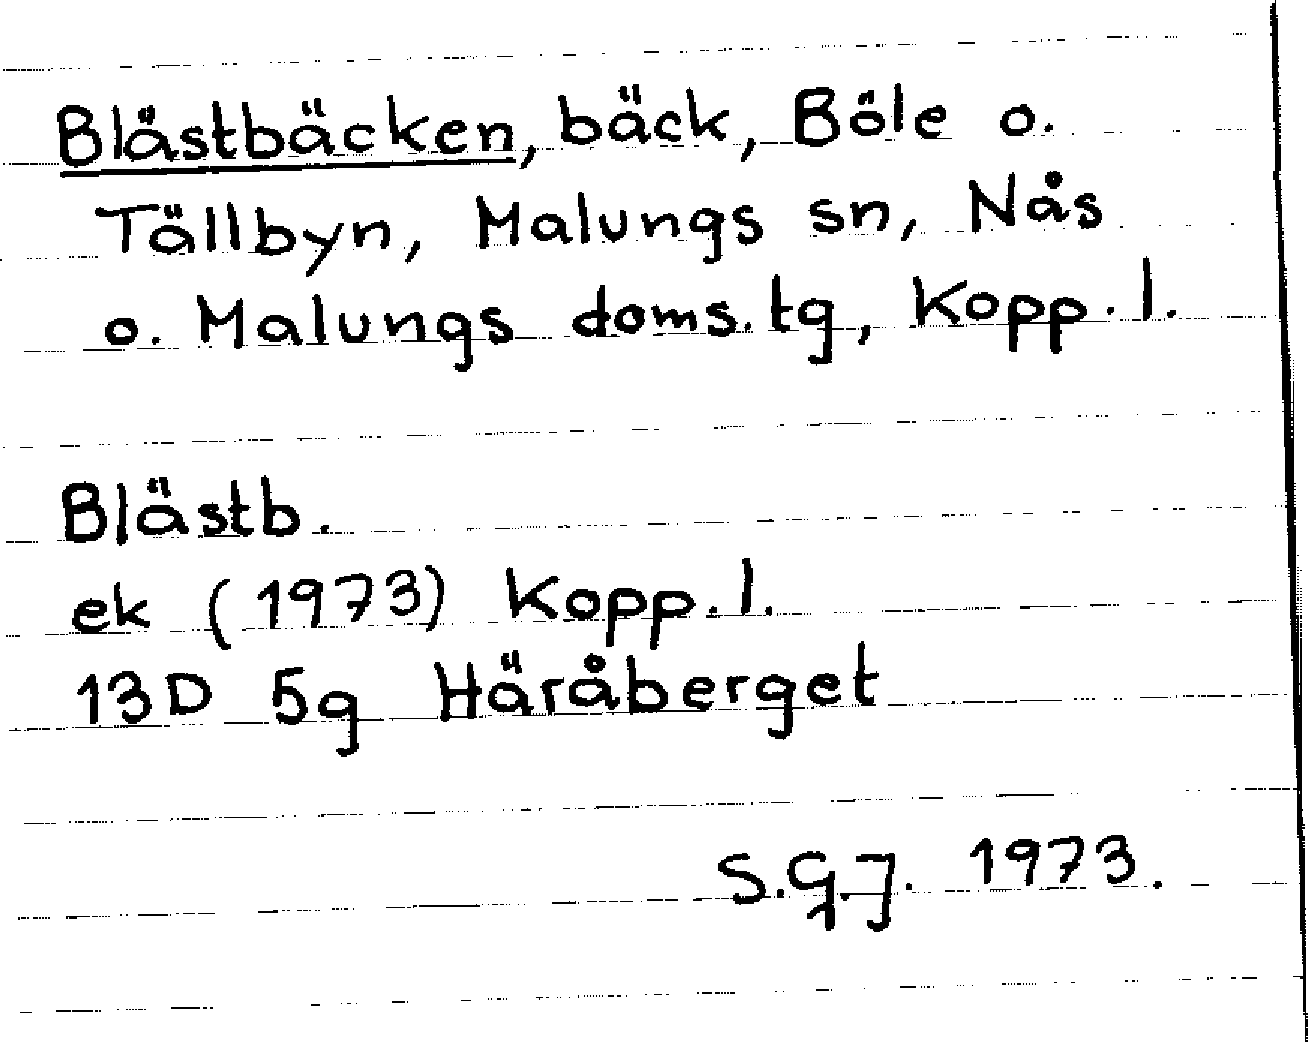 Blästbäcken, bäck, Böle o.
Tällbyn, Malungs sn, Nås
o. Malungs doms.tg, Kopp.l.
Blästb.
ek (1973) Kopp.l.
13D 5g Häråberget
S.G.J. 1973.